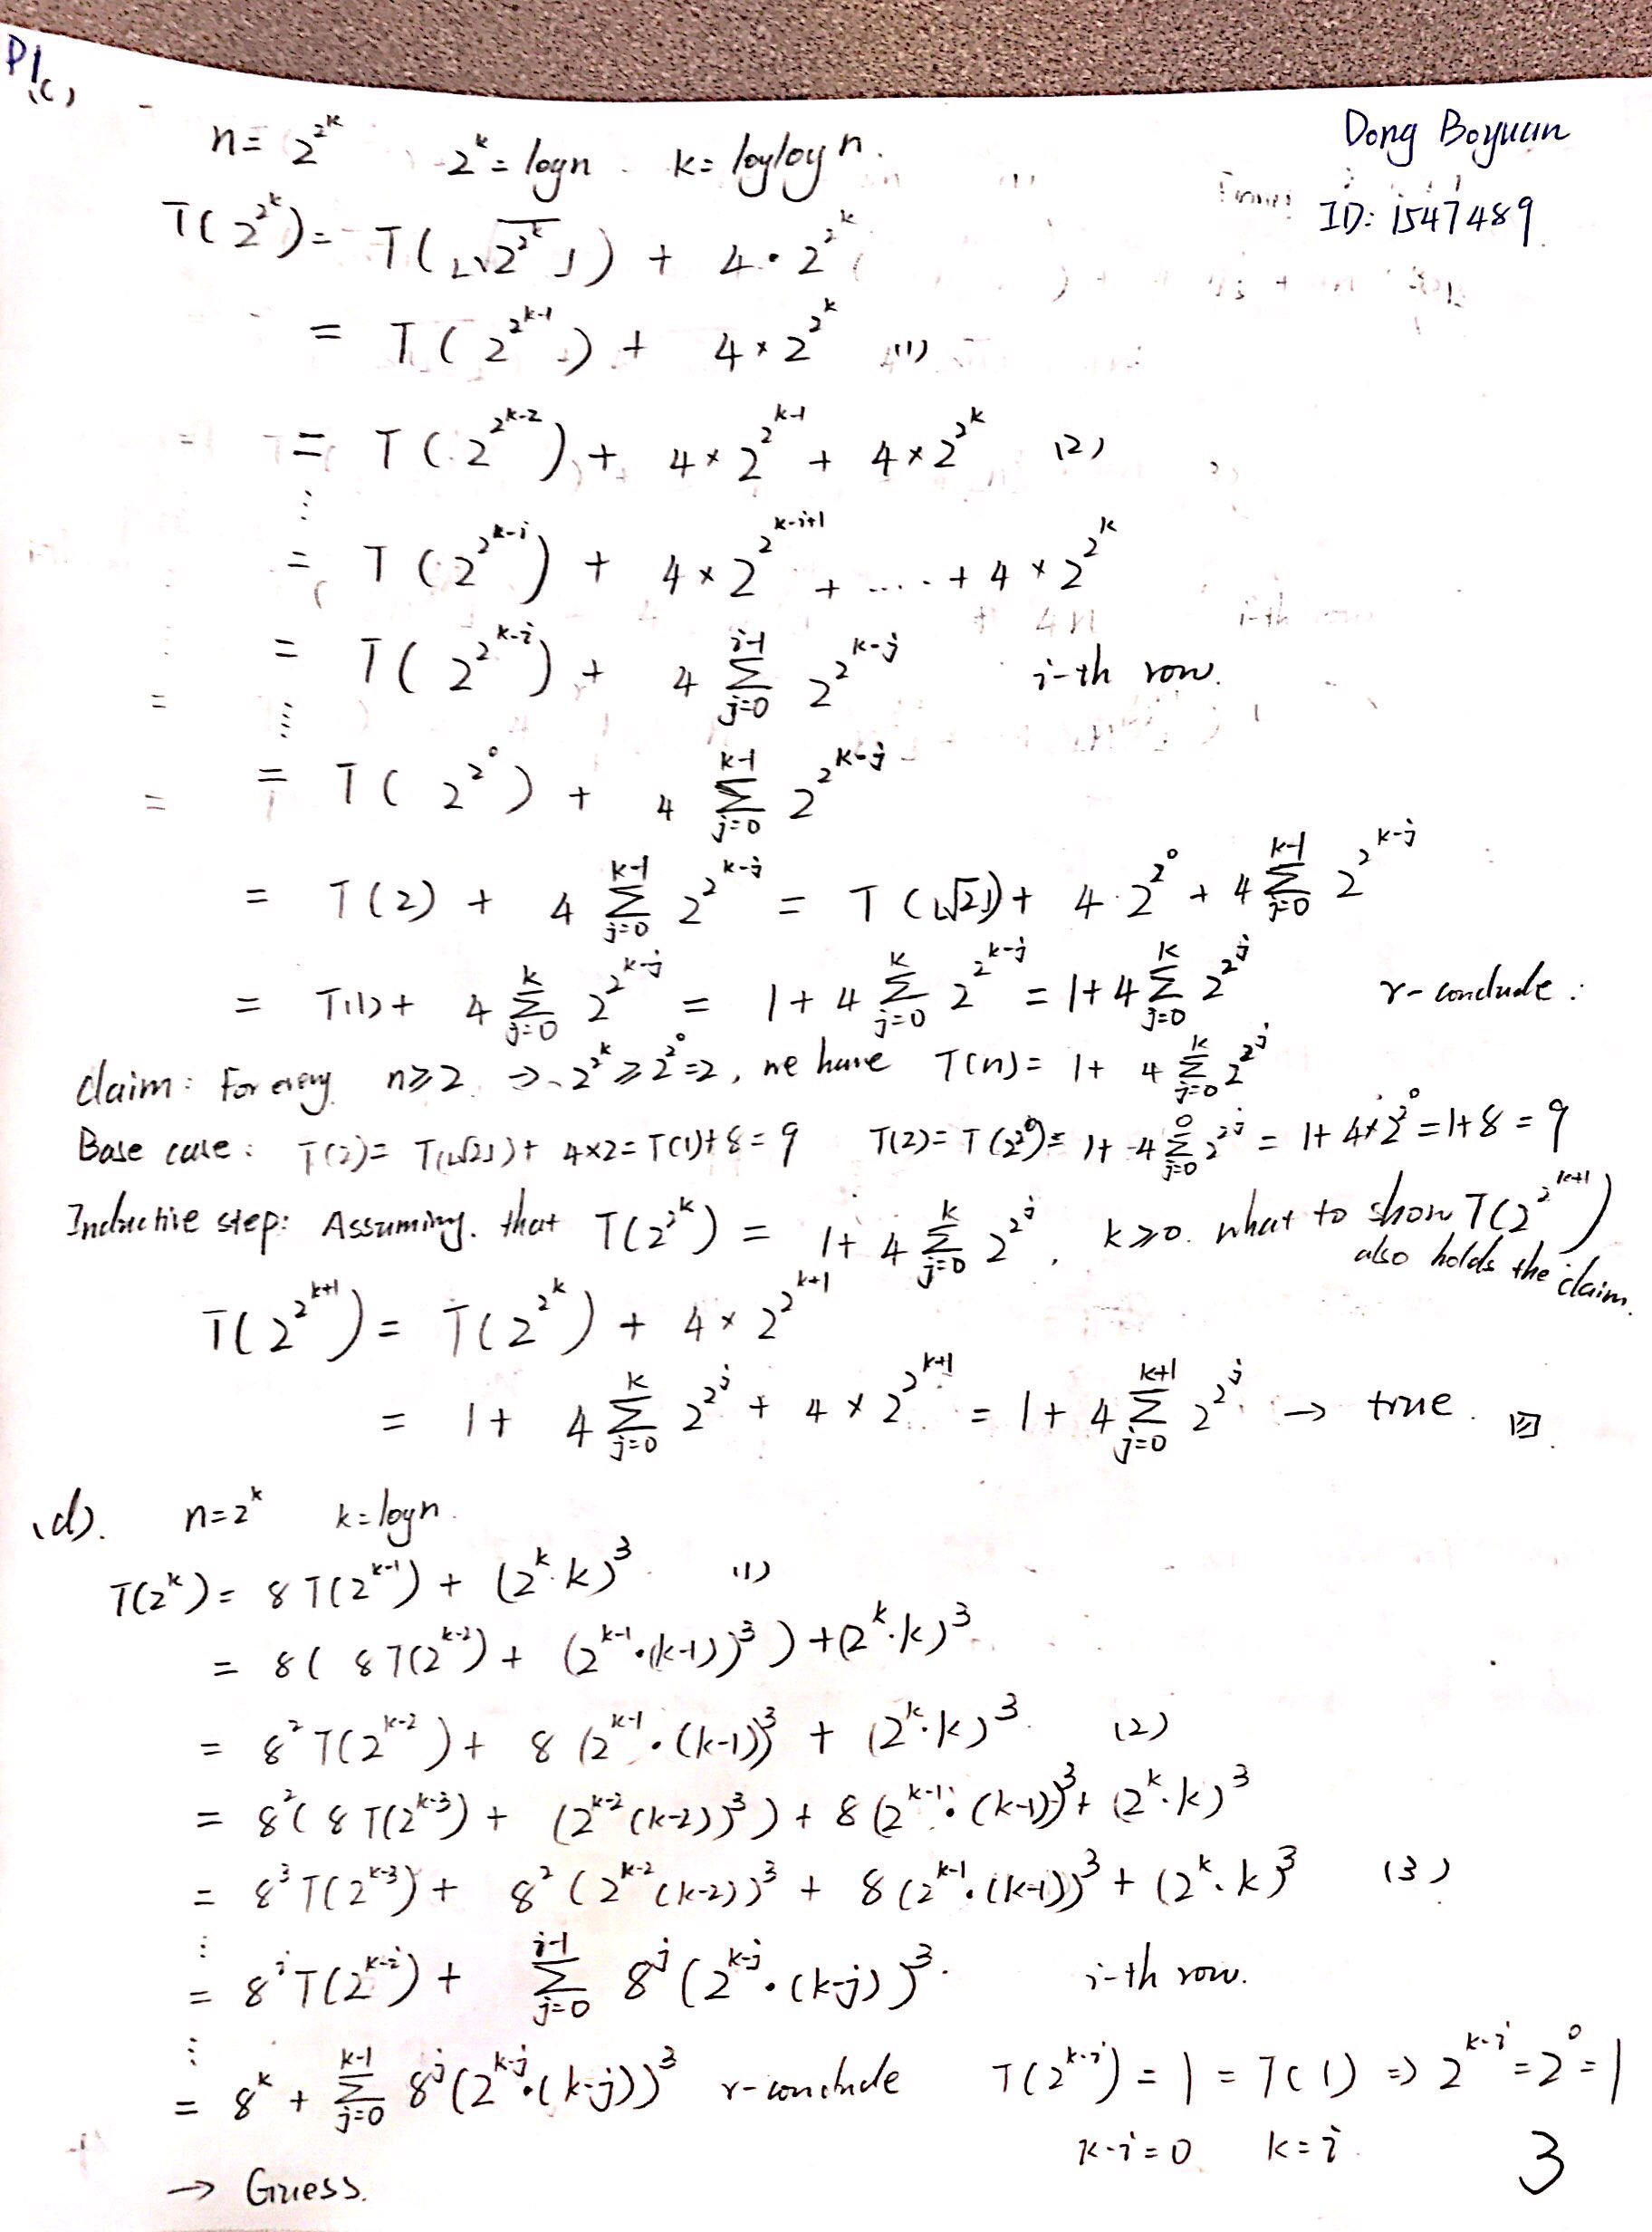 P1(c)
Dong Boyuan
ID: 1547489
n = 2^{2^k}   2^k = logn   k = loglog n.
T(2^{2^k}) = T(⌊√(2^{2^k})⌋) + 4·2^{2^k}
= T(2^{2^{k-1}}) + 4×2^{2^k}   (1)
= T(2^{2^{k-2}}) + 4×2^{2^{k-1}} + 4×2^{2^k}   (2)
⋮
= T(2^{2^{k-i}}) + 4×2^{2^{k-i+1}} + .... + 4×2^{2^k}
= T(2^{2^{k-i}}) + 4 ∑_{j=0}^{i-1} 2^{2^{k-j}}   i-th row.
⋮
= T(2^{2^0}) + 4 ∑_{j=0}^{k-1} 2^{2^{k-j}}
= T(2) + 4 ∑_{j=0}^{k-1} 2^{2^{k-j}} = T(⌊√2⌋) + 4·2^{2^0} + 4 ∑_{j=0}^{k-1} 2^{2^{k-j}}
= T(1) + 4 ∑_{j=0}^{k} 2^{2^{k-j}} = 1 + 4 ∑_{j=0}^{k} 2^{2^{k-j}} = 1 + 4 ∑_{j=0}^{k} 2^{2^j}   r-conclude :
Claim: For every n≥2 → 2^{2^k} ≥ 2^{2^0} = 2, we have T(n) = 1 + 4 ∑_{j=0}^{k} 2^{2^j}
Base case: T(2) = T(⌊√2⌋) + 4×2 = T(1) + 8 = 9   T(2) = T(2^{2^0}) = 1 + 4 ∑_{j=0}^{0} 2^{2^j} = 1 + 4×2^{2^0} = 1+8 = 9
Inductive step: Assuming. that T(2^{2^k}) = 1 + 4 ∑_{j=0}^{k} 2^{2^j}, k≥0. what to show T(2^{2^{k+1}})
also holds the claim.
T(2^{2^{k+1}}) = T(2^{2^k}) + 4×2^{2^{k+1}}
= 1 + 4 ∑_{j=0}^{k} 2^{2^j} + 4×2^{2^{k+1}} = 1 + 4 ∑_{j=0}^{k+1} 2^{2^j} → true.
(d). n = 2^k   k = logn.
T(2^k) = 8T(2^{k-1}) + (2^k·k)^3   (1)
= 8( 8T(2^{k-2}) + (2^{k-1}·(k-1))^3 ) + (2^k·k)^3
= 8^2 T(2^{k-2}) + 8(2^{k-1}·(k-1))^3 + (2^k·k)^3   (2)
= 8^2( 8T(2^{k-3}) + (2^{k-2}(k-2))^3 ) + 8(2^{k-1}·(k-1))^3 + (2^k·k)^3
= 8^3 T(2^{k-3}) + 8^2(2^{k-2}(k-2))^3 + 8(2^{k-1}·(k-1))^3 + (2^k·k)^3   (3)
⋮
= 8^i T(2^{k-i}) + ∑_{j=0}^{i-1} 8^j(2^{k-j}·(k-j))^3.   i-th row.
⋮
= 8^k + ∑_{j=0}^{k-1} 8^j(2^{k-j}·(k-j))^3   r-conclude   T(2^{k-i}) = 1 = T(1) ⇒ 2^{k-i} = 2^0 = 1
k-i = 0   k = i
→ Guess.
3